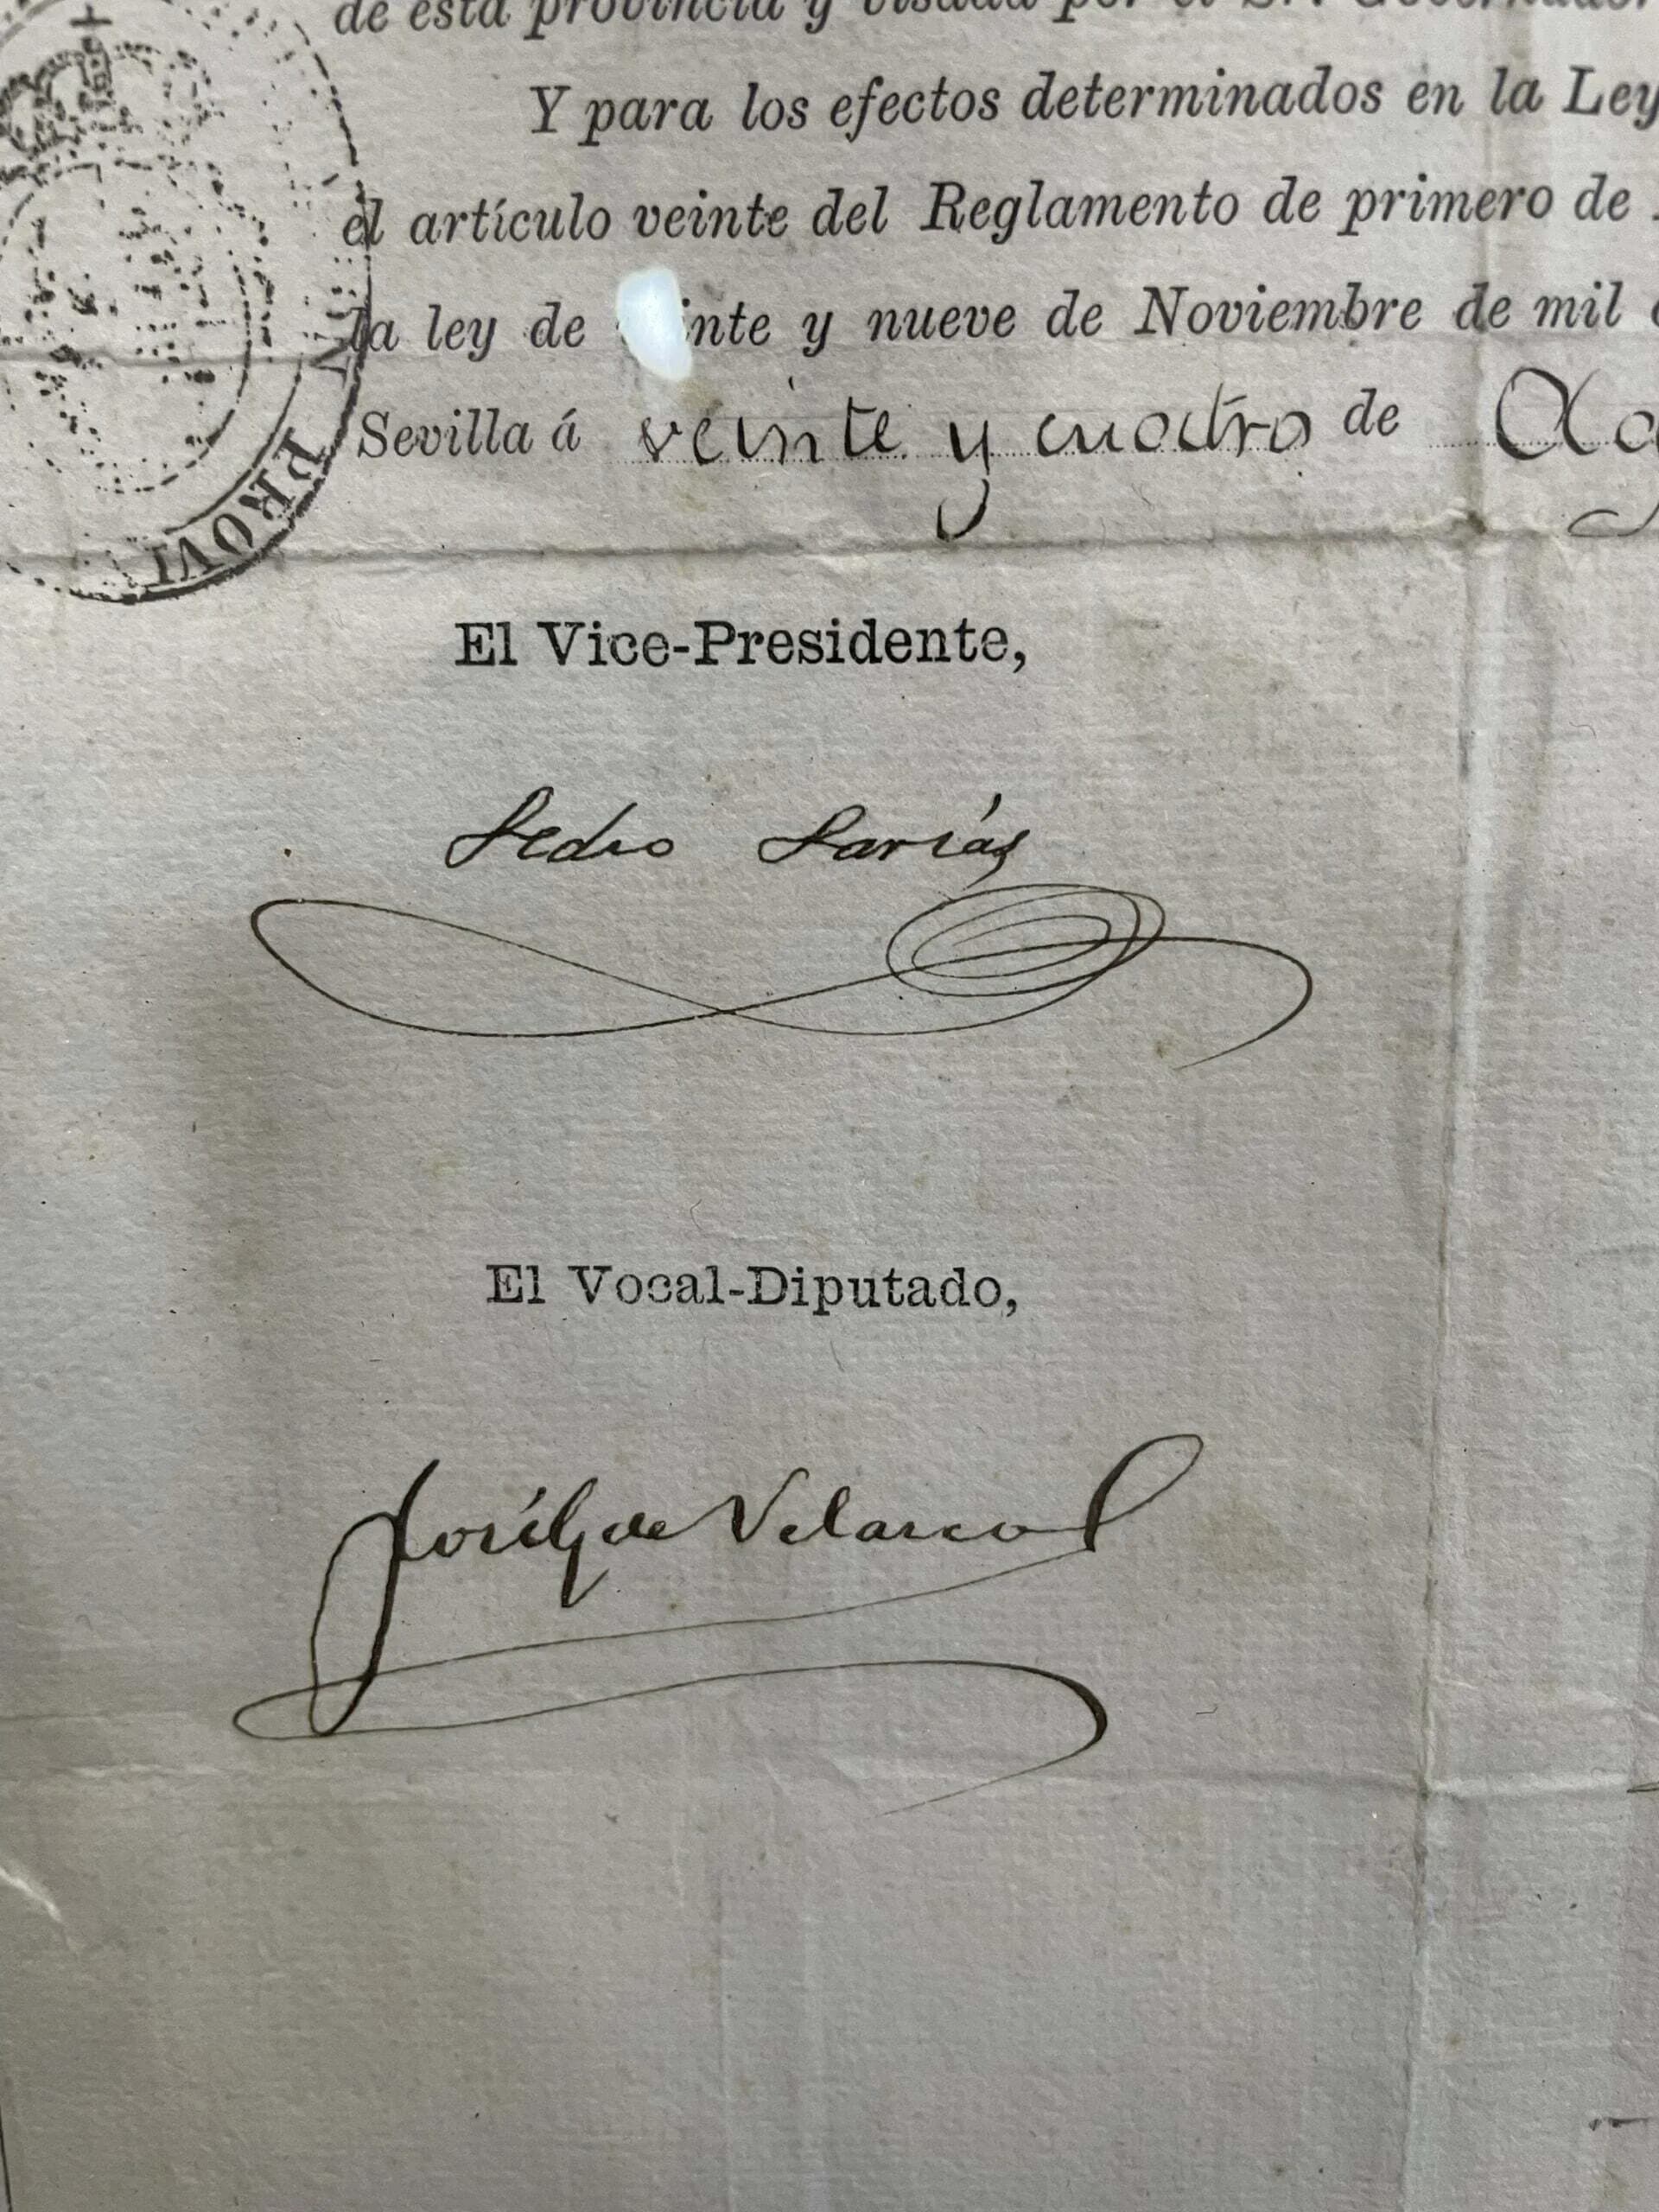 de esta provincia y visada por el Sr. Gobernador
Y para los efectos determinados en la Ley
el artículo veinte del Reglamento de primero de
la ley de inte y nueve de Noviembre de mil
Sevilla á veinte y cuatro de Ag
PROVI
El Vice-Presidente,
Pedro
El Vocal-Diputado,
José de Velasco